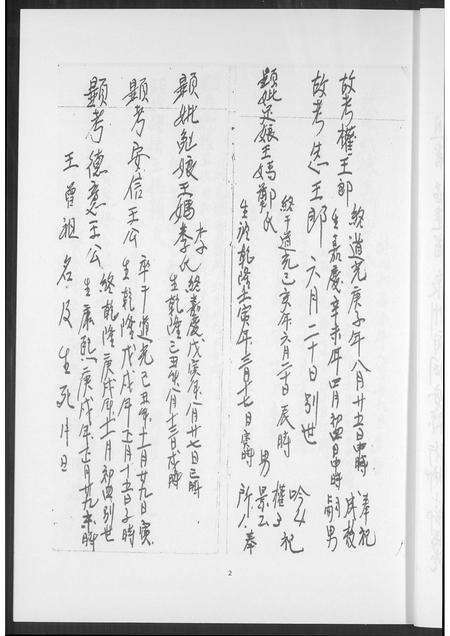 王曾祖名及生死月日
顯考德意王公
生康熙庚戌年正月廿九未時
終乾隆庚戌年十一月初四別世
顯考安信王公
生乾隆戊戌年正月十五日子時
卒于道光己丑年十一月廿九日寅
顯妣勉娘王媽李氏
生乾隆己丑年八月十三日戌時
終嘉慶戊寅年八月廿七巳時
顯妣足娘王媽鄭氏
生於乾隆壬寅年三月十七日寅時
終于道光己亥年六月二十日辰時
男
所奉
祀
故考王郎六月二十日別世
故考權王郎
生嘉慶辛未年四月初四日申時
終道光庚子年八月廿五日申時
嗣男
奉祀
2